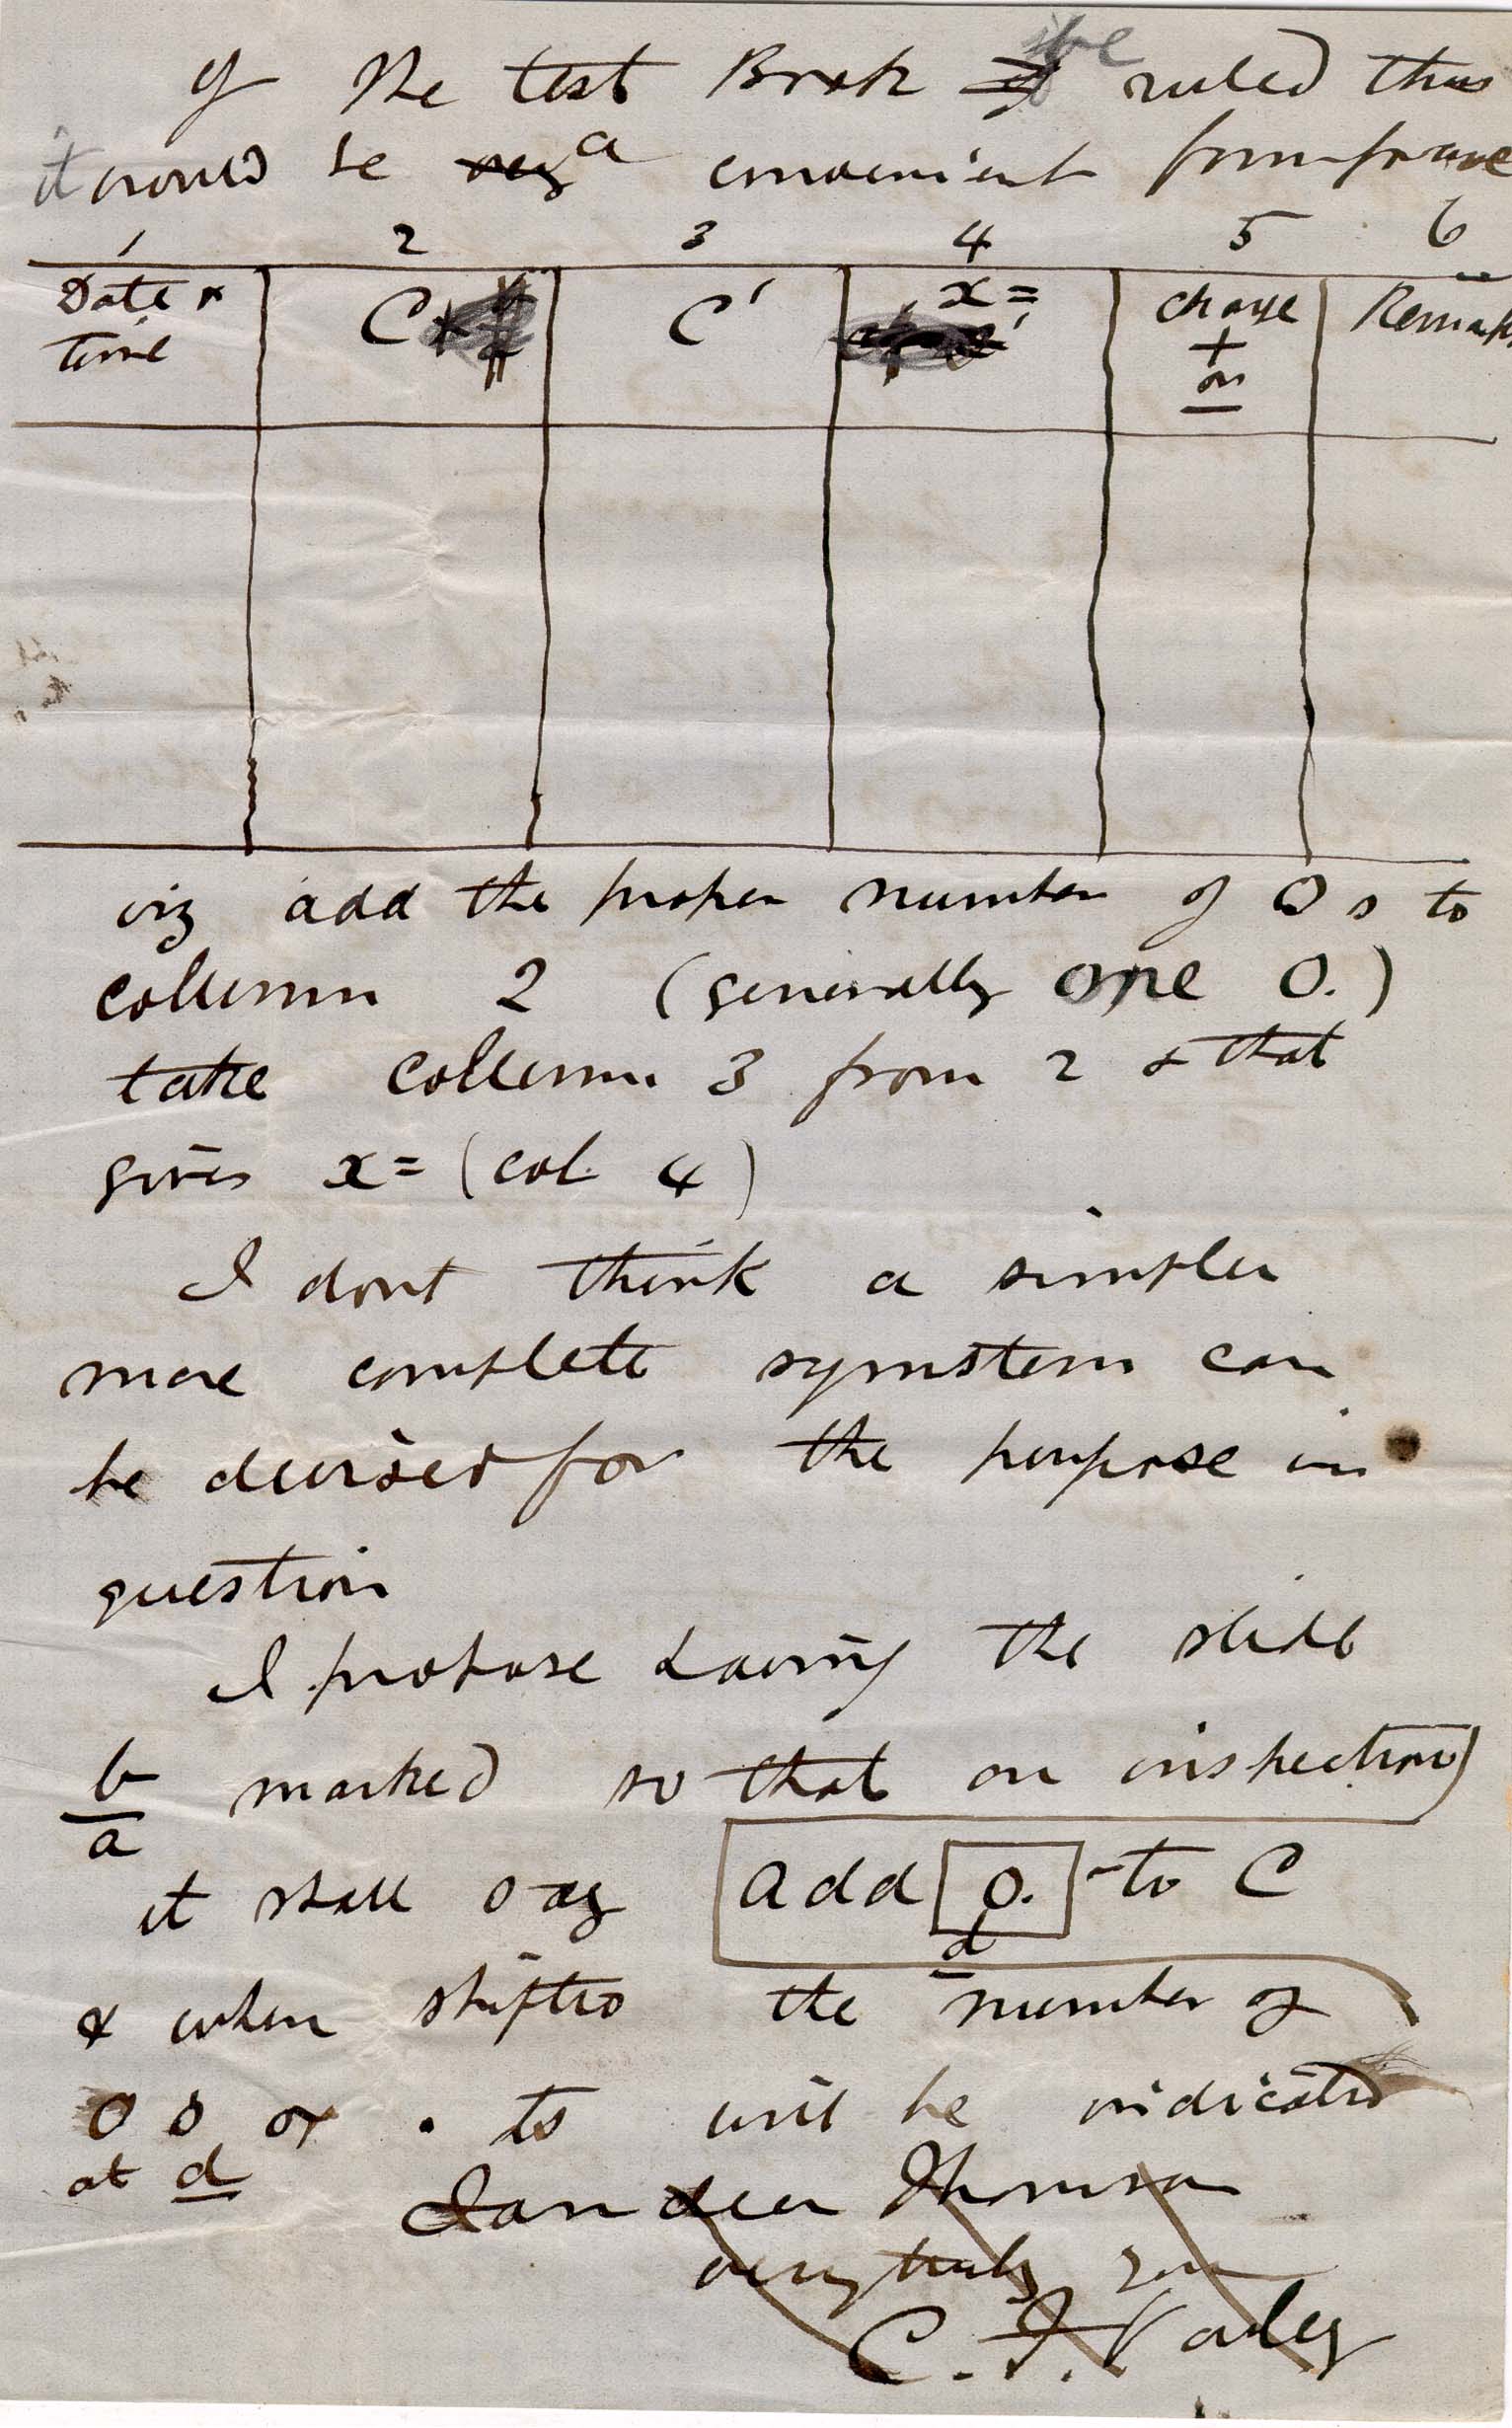 If the test Book be ruled thus
it would be a convenient form
1 2 3 4 5 6
Date & time C C' x = charge + or - Remarks
viz add the proper number of 0s to
column 2 (generally one 0.)
take column 3 from 2 & that
gives x = (col 4)
I dont think a simpler
more complete symstem can
be devised for the purpose in
question
I propose having the slide
b/a marked so that on inspection
it shall say add 0. to C
d
& when shifted the number of
0 0 or . ts will be indicated
at d
I am dear Thomson
very truly yours
C. F. Varley